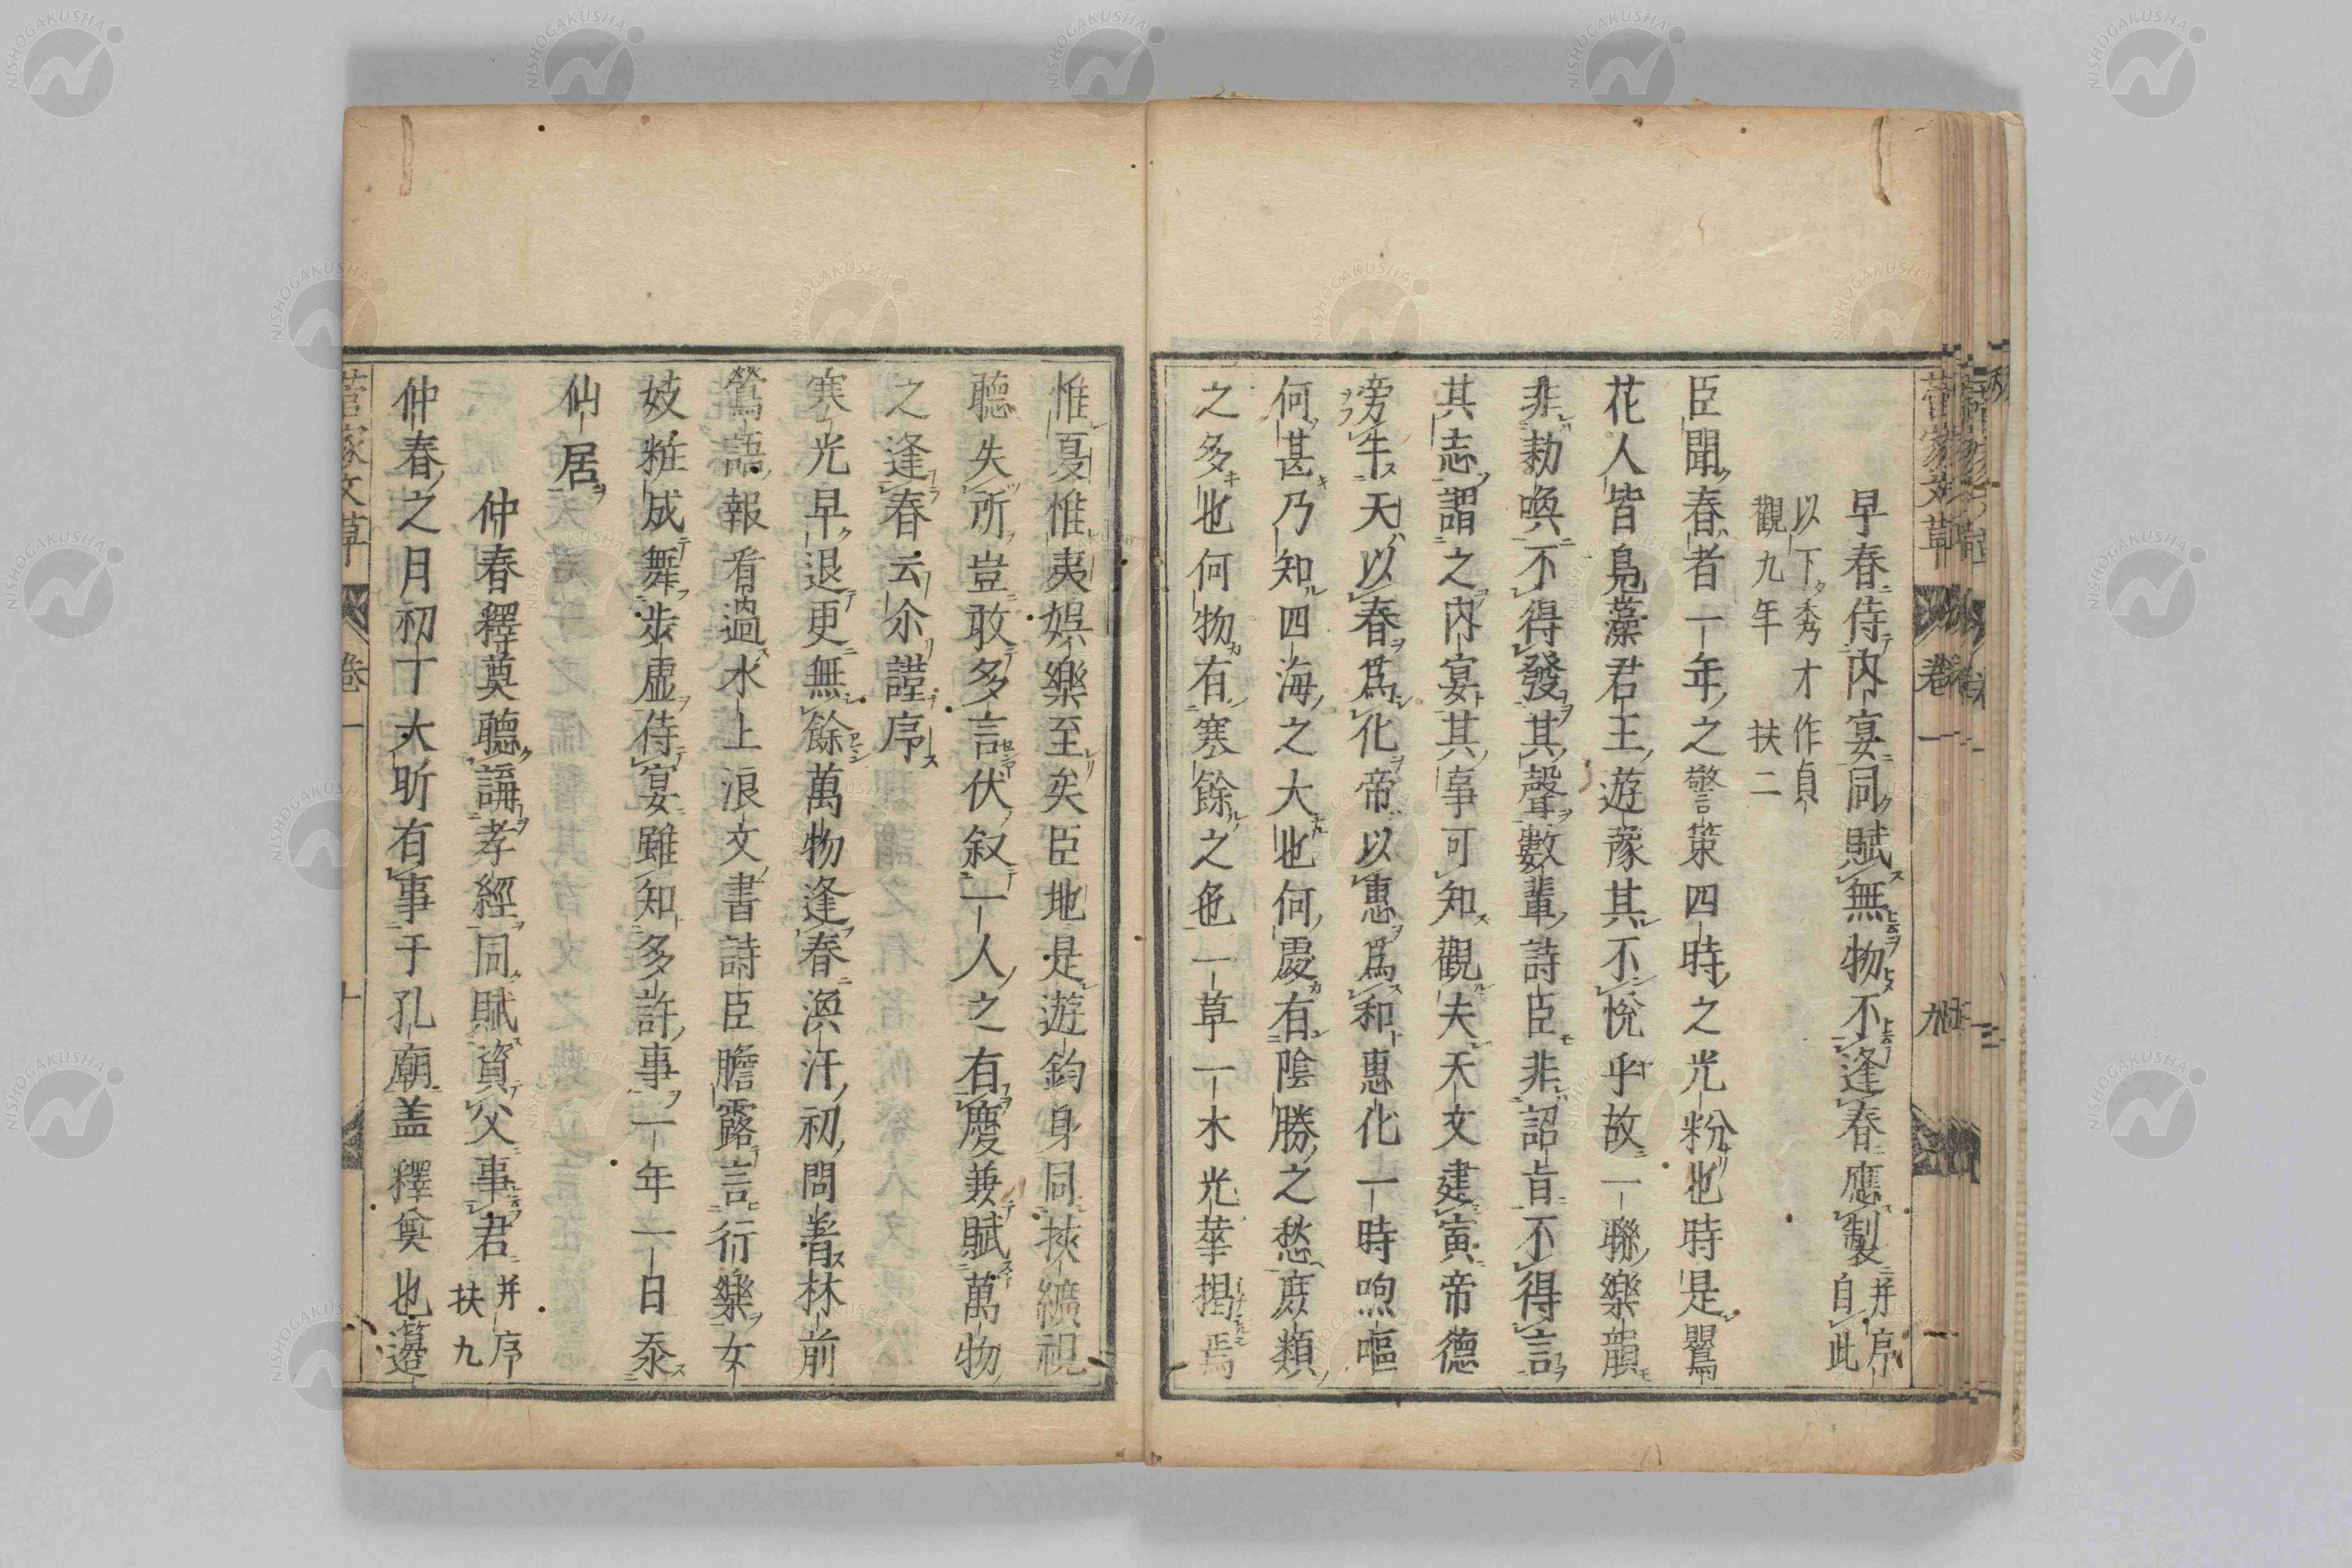 早春侍内宴同賦無物不逢春應製并序自此
以下秀才作貞
觀九年 扶二
臣聞春者一年之警策四時之光粉也時是鸎
花人皆鳧藻君王遊豫其不悅乎故一聯樂韻
非勅喚不得發其聲數輩詩臣非詔旨不得言
其志謂之内宴其事可知觀夫天文建寅帝德
旁牛天以春爲化帝以惠爲和惠化一時呴嘔
何甚乃知四海之大也何慶有陰勝之愁庶類
之多也何物有寒餘之色一草一木光華掲焉
惟夏惟夷娯樂至矣臣地是遊鈞身同挾纊視
聽失所豈敢多言伏叙一人之有慶兼賦萬物
之逢春云尒謹序
寒光早退更無餘萬物逢春渙汗初問著林前
鶯語報看過水上浪文書詩臣膽露言行樂女
妓粧成舞步虛侍宴雖知多許事一年一日忝
仙居
仲春釋奠聽講孝經同賦資父事君并序
扶九
仲春之月初丁大昕有事于孔廟盖釋奠也籩
菅家文草 卷一